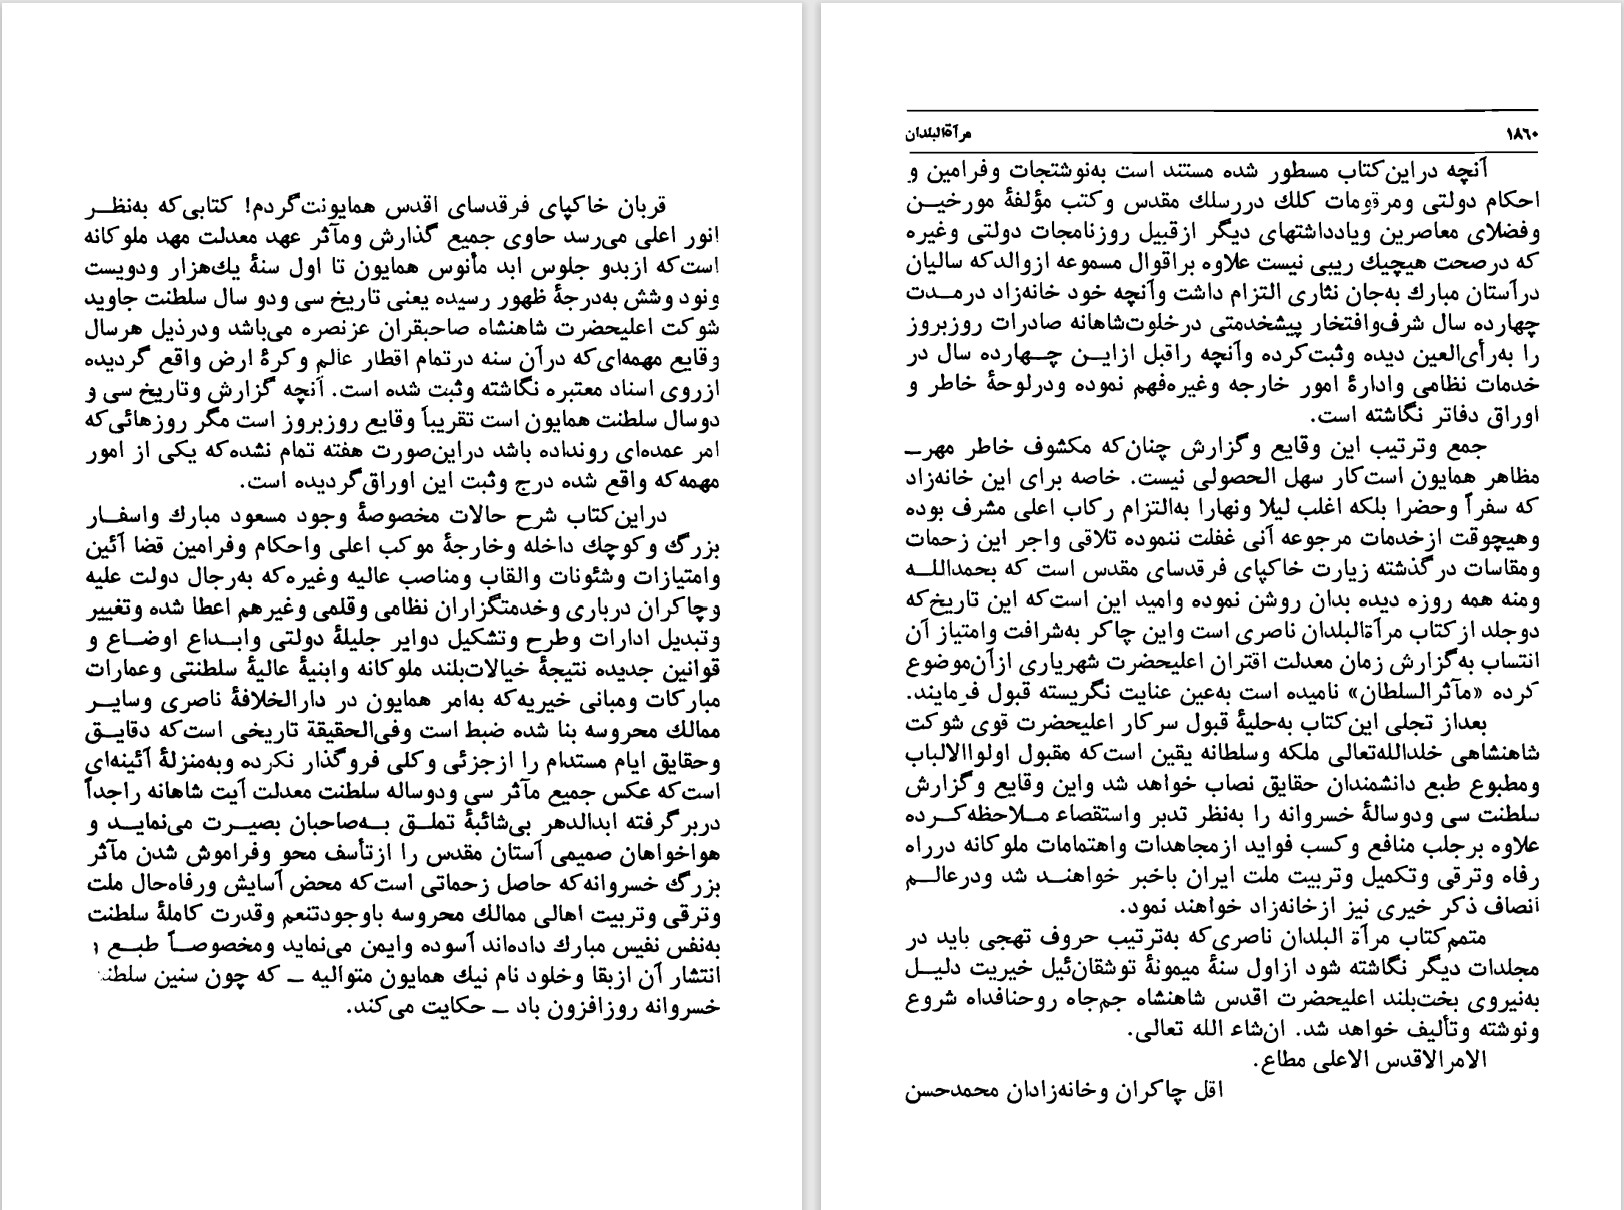 قربان خاكپای فرقدسای اقدس همایونت‌گردم! كتابی‌كه به‌نظـر
انور اعلی می‌رسد حاوی جمیع گذارش ومآثر عهد معدلت مهد ملوكانه
است‌كه ازبدو جلوس ابد مأنوس همایون تا اول سنهٔ یك‌هزار ودویست
ونود وشش به‌درجهٔ ظهور رسیده یعنی تاریخ سی ودو سال سلطنت جاوید
شوكت اعلیحضرت شاهنشاه صاحبقران عزنصره می‌باشد ودرذیل هرسال
وقایع مهمه‌ای‌كه درآن سنه درتمام اقطار عالم وكرهٔ ارض واقع گردیده
ازروی اسناد معتبره نگاشته وثبت شده است. آنچه گزارش وتاریخ سی و
دوسال سلطنت همایون است تقریباً وقایع روزبروز است مگر روزهائی‌كه
امر عمده‌ای رونداده باشد دراین‌صورت هفته تمام نشده‌كه یكی از امور
مهمه‌كه واقع شده درج وثبت این اوراق‌گردیده است.
دراین‌كتاب شرح حالات مخصوصهٔ وجود مسعود مبارك واسفـار
بزرگ وكوچك داخله وخارجهٔ موكب اعلی واحكام وفرامین قضا آئین
وامتیازات وشئونات والقاب ومناصب عالیه وغیره‌كه به‌رجال دولت علیه
وچاكران درباری وخدمتگزاران نظامی وقلمی وغیرهم اعطا شده وتغییر
وتبدیل ادارات وطرح وتشكیل دوایر جلیلهٔ دولتی وابـداع اوضـاع و
قوانین جدیده نتیجهٔ خیالات‌بلند ملوكانه وابنیهٔ عالیهٔ سلطنتی وعمارات
مباركات ومبانی خیریه‌كه به‌امر همایون در دارالخلافهٔ ناصری وسایـر
ممالك محروسه بنا شده ضبط است وفی‌الحقیقة تاریخی است‌كه دقایـق
وحقایق ایام مستدام را ازجزئی وكلی فروگذار نكرده وبه‌منزلهٔ آئینه‌ای
است‌كه عكس جمیع مآثر سی ودوساله سلطنت معدلت آیت شاهانه راجداً
دربرگرفته ابدالدهر بی‌شائبهٔ تملـق بـه‌صاحبان بصیـرت می‌نمایـد و
هواخواهان صمیمی آستان مقدس را ازتأسف محو وفراموش شدن مآثر
بزرگ خسروانه‌كه حاصل زحماتی است‌كه محض آسایش ورفاه‌حال ملت
وترقی وتربیت اهالی ممالك محروسه باوجودتنعم وقدرت كاملهٔ سلطنت
به‌نفس نفیس مبارك داده‌اند آسوده وایمن می‌نماید ومخصوصـاً طبـع و
انتشار آن ازبقا وخلود نام نیك همایون متوالیه ـ كه چون سنین سلطنت
خسروانه روزافزون باد ـ حكایت می‌كند.
۱۸۶۰
مرآةالبلدان
آنچه دراین‌كتاب مسطور شده مستند است به‌نوشتجات وفرامین و
احكام دولتی ومرقومات كلك دررسلك مقدس وكتب مؤلفهٔ مورخیـن
وفضلای معاصرین ویادداشتهای دیگر ازقبیل روزنامجات دولتی وغیره
كه درصحت هیچیك ریبی نیست علاوه براقوال مسموعه ازوالدكه سالیان
درآستان مبارك به‌جان نثاری التزام داشت وآنچه خود خانه‌زاد درمـدت
چهارده سال شرف‌وافتخار پیشخدمتی درخلوت‌شاهانه صادرات روزبروز
را به‌رأی‌العین دیده وثبت‌كرده وآنچه راقبل ازایـن چـهارده سال در
خدمات نظامی وادارهٔ امور خارجه وغیره‌فهم نموده ودرلوحهٔ خاطر و
اوراق دفاتر نگاشته است.
جمع وترتیب این وقایع وگزارش چنان‌كه مكشوف خاطر مهرـ
مظاهر همایون است‌كار سهل الحصولی نیست. خاصه برای این خانه‌زاد
كه سفراً وحضرا بلكه اغلب لیلا ونهارا به‌التزام ركاب اعلی مشرف بوده
وهیچوقت ازخدمات مرجوعه آنی غفلت ننموده تلاقی واجر این زحمات
ومقاسات درگذشته زیارت خاكپای فرقدسای مقدس است كه بحمداللـه
ومنه همه روزه دیده بدان روشن نموده وامید این است‌كه این تاریخ‌كه
دوجلد ازكتاب مرآةالبلدان ناصری است واین چاكر به‌شرافت وامتیاز آن
انتساب به‌گزارش زمان معدلت اقتران اعلیحضرت شهریاری ازآن‌موضوع
كرده «مآثرالسلطان» نامیده است به‌عین عنایت نگریسته قبول فرمایند.
بعداز تجلی این‌كتاب به‌حلیهٔ قبول سركار اعلیحضرت قوی شوكت
شاهنشاهی خلدالله‌تعالی ملكه وسلطانه یقین است‌كه مقبول اولواالالباب
ومطبوع طبع دانشمندان حقایق نصاب خواهد شد واین وقایع وگزارش
سلطنت سی ودوسالهٔ خسروانه را به‌نظر تدبر واستقصاء مـلاحظه‌كـرده
علاوه برجلب منافع وكسب فواید ازمجاهدات واهتمامات ملوكانه درراه
رفاه وترقی وتكمیل وتربیت ملت ایران باخبر خواهنـد شد ودرعالـم
انصاف ذكر خیری نیز ازخانه‌زاد خواهند نمود.
متمم‌كتاب مرآة البلدان ناصری‌كه به‌ترتیب حروف تهجی باید در
مجلدات دیگر نگاشته شود ازاول سنهٔ میمونهٔ توشقان‌ئیل خیریت دلیـل
به‌نیروی بخت‌بلند اعلیحضرت اقدس شاهنشاه جم‌جاه روحنافداه شروع
ونوشته وتألیف خواهد شد. ان‌شاء الله تعالی.
الامرالاقدس الاعلی مطاع.
اقل چاكران وخانه‌زادان محمدحسن